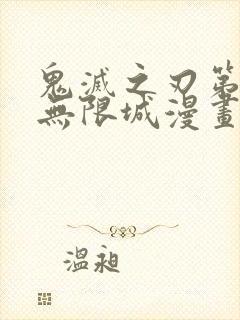 鬼滅之刃第
無限城漫畫
溫昶